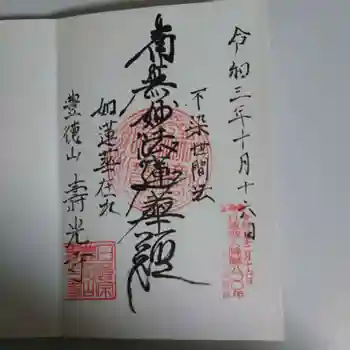 令和三年十月十六日
不染世間法
南無妙法蓮華経
如蓮華在水
豊徳山 寿光寺